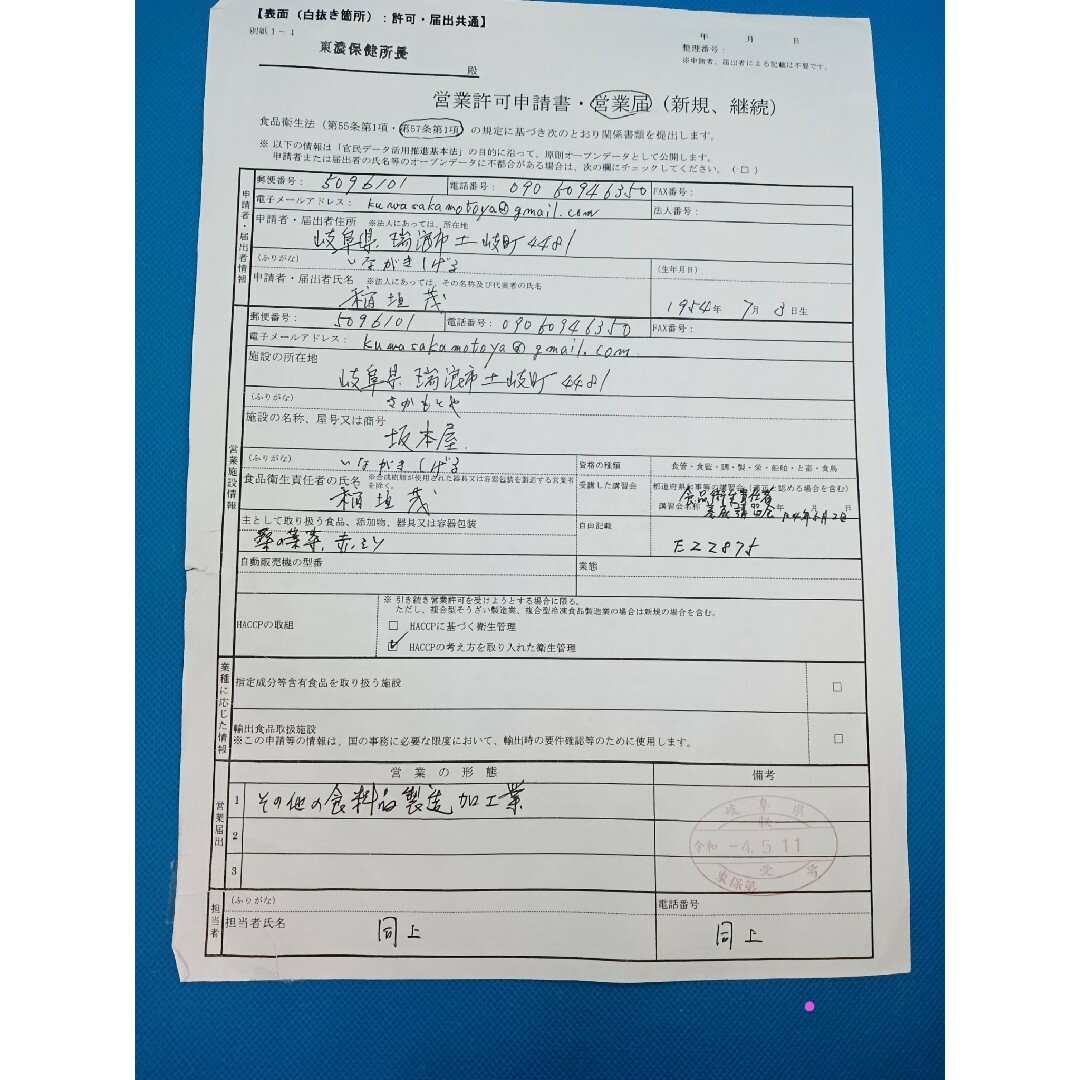 【表面（白抜き箇所）：許可・届出共通】
別紙１－１
年 月 日
東濃保健所長
殿
整理番号：
※申請者、届出者による記載は不要です。
営業許可申請書・営業届（新規、継続）
食品衛生法（第55条第1項・第57条第1項）の規定に基づき次のとおり関係書類を提出します。
※ 以下の情報は「官民データ活用推進基本法」の目的に沿って、原則オープンデータとして公開します。
申請者または届出者の氏名等のオープンデータに不都合がある場合は、次の欄にチェックしてください。（□）
申請者・届出者情報
郵便番号： 5096101 電話番号： 090 6094 6350 FAX番号：
電子メールアドレス： kuwasakamotoya@gmail.com 法人番号：
申請者・届出者住所 ※法人にあっては、所在地
岐阜県 瑞浪市土岐町4481
（ふりがな） いながきしげる （生年月日）
申請者・届出者氏名 ※法人にあっては、その名称及び代表者の氏名
稲垣 茂 1954年 7月 3日生
営業施設情報
郵便番号： 5096101 電話番号： 090 6094 6350 FAX番号：
電子メールアドレス： kuwasakamotoya@gmail.com
施設の所在地
岐阜県 瑞浪市土岐町4481
（ふりがな） さかもとや
施設の名称、屋号又は商号
坂本屋
（ふりがな） いながきしげる 資格の種類 食管・食監・調・製・栄・船舶・と畜・食鳥
食品衛生責任者の氏名 ※合成樹脂が使用された器具又は容器包装を製造する営業者を除く。
稲垣 茂
受講した講習会 都道府県知事等の講習会（適正と認める場合を含む）
講習会名称 食品衛生責任者養成講習会 年 月 日
主として取り扱う食品、添加物、器具又は容器包装 自由記載
桑の葉茶、 E22875
自動販売機の型番 業態
HACCPの取組
※ 引き続き営業許可を受けようとする場合に限る。
ただし、複合型そうざい製造業、複合型冷凍食品製造業の場合は新規の場合を含む。
□ HACCPに基づく衛生管理
☑ HACCPの考え方を取り入れた衛生管理
業種に応じた情報
指定成分等含有食品を取り扱う施設 □
輸出食品取扱施設
※この申請等の情報は、国の事務に必要な限度において、輸出時の要件確認等のために使用します。 □
営業届出
営業の形態 備考
1 その他の食料品製造加工業
2
3
岐阜県
収
令和 -4.5.11
受
東保第 号
担当者
（ふりがな） 電話番号
担当者氏名 同上 同上